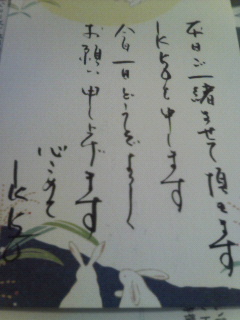 本日ご一緒させて頂きます
IKKOと申します
今日一日どうぞよろしく
お願い申し上げます
心こめて
IKKO